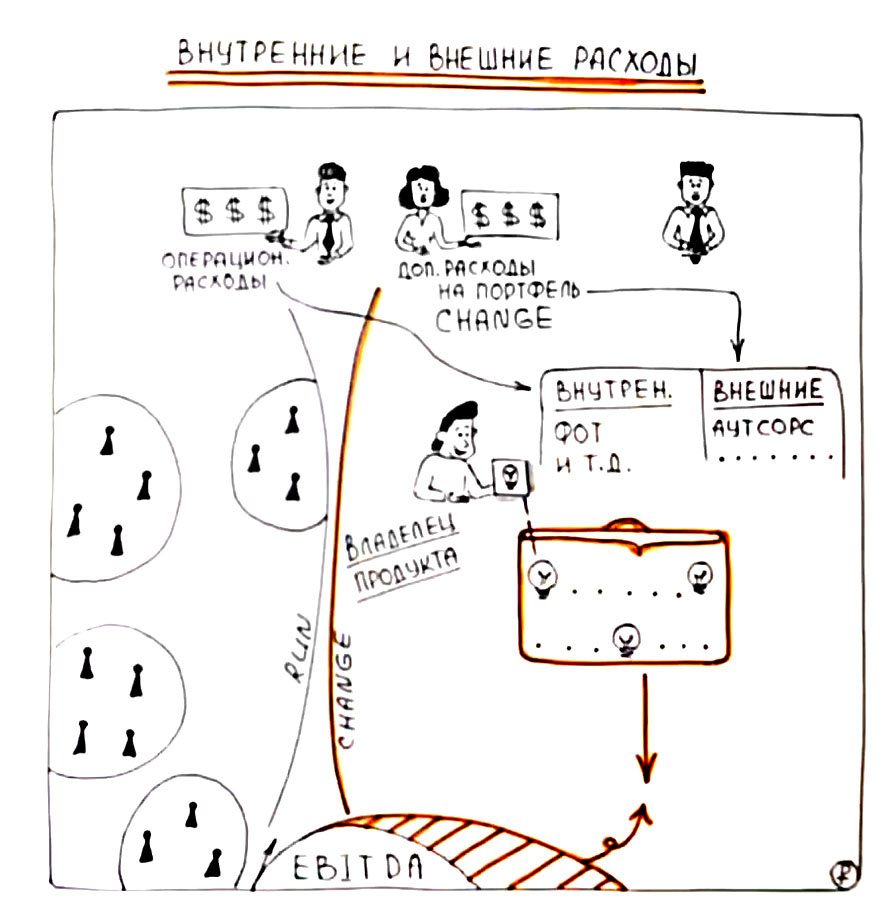 ВНУТРЕННИЕ И ВНЕШНИЕ РАСХОДЫ
$ $ $
$ $ $
ОПЕРАЦИОН.
РАСХОДЫ
ДОП. РАСХОДЫ
НА ПОРТФЕЛЬ
CHANGE
ВНУТРЕН.
ФОТ
И Т.Д.
ВНЕШНИЕ
АУТСОРС
.......
ВЛАДЕЛЕЦ
ПРОДУКТА
RUN
CHANGE
EBITDA
₽